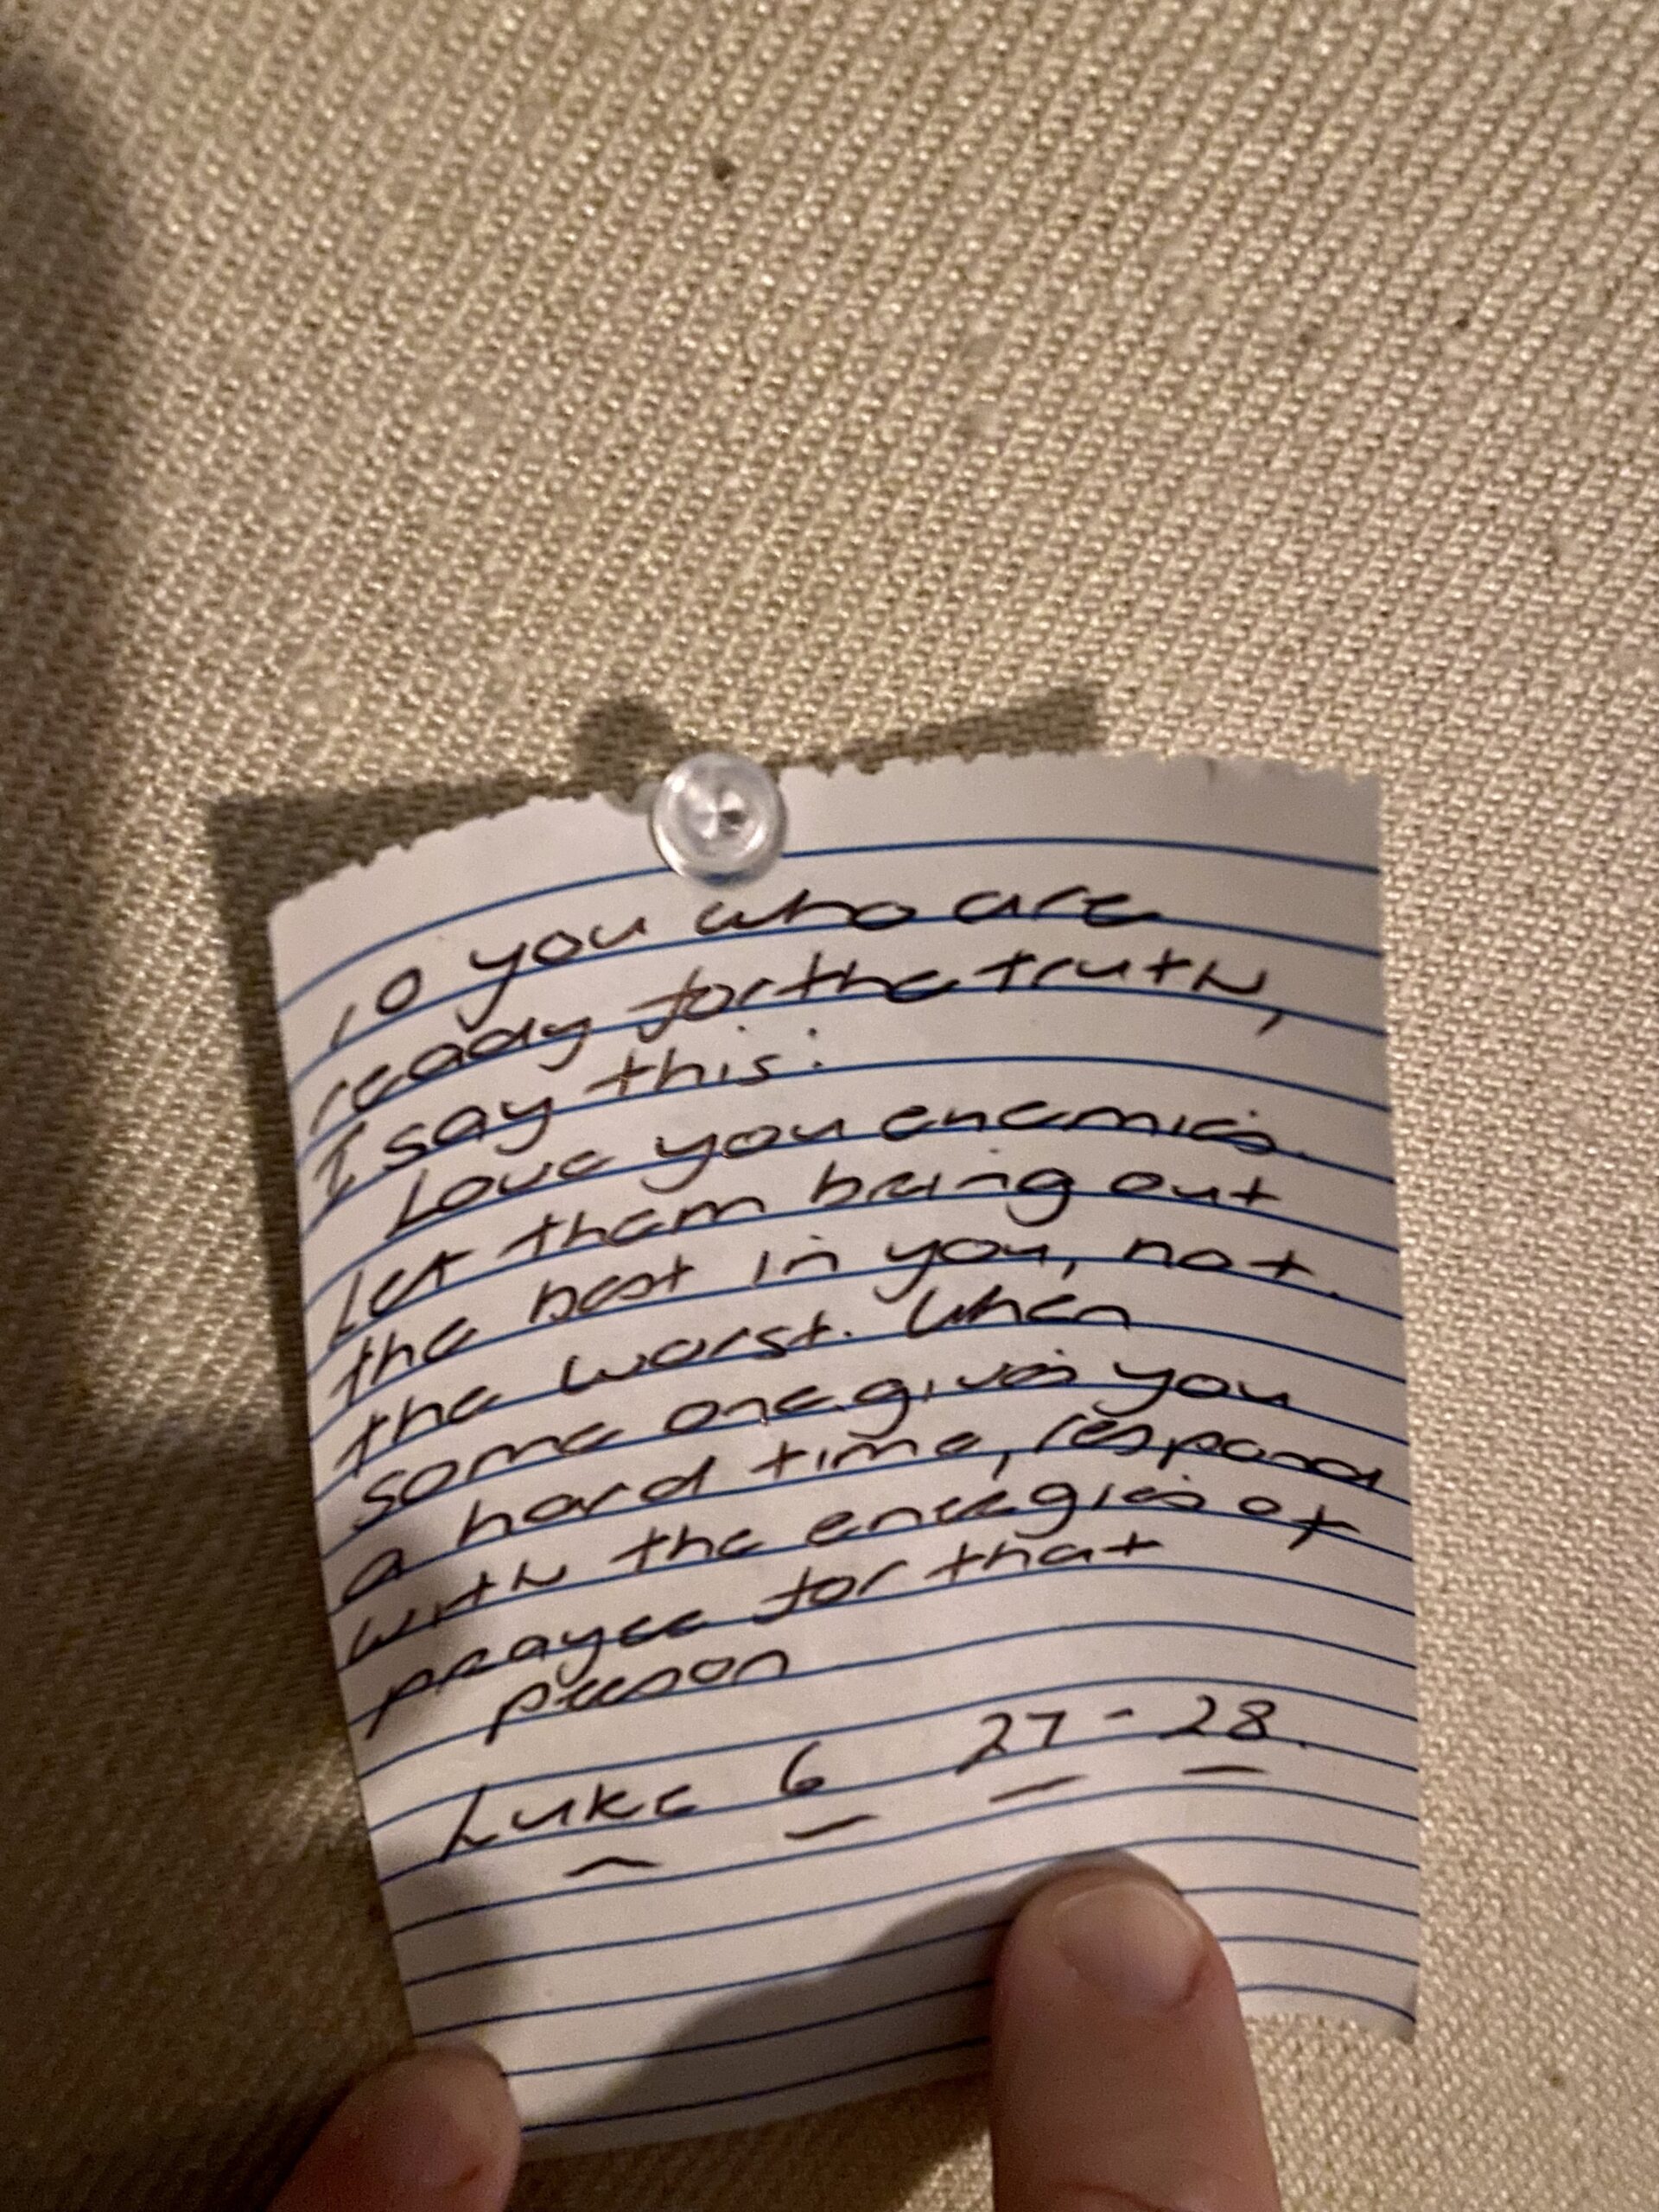 To you who are
ready for the truth,
I say this:
Love you enemies.
Let them bring out
the best in you, not
the worst. When
some one gives you
a hard time, respond
with the energies of
prayer for that
person
Luke 6 27 - 28.